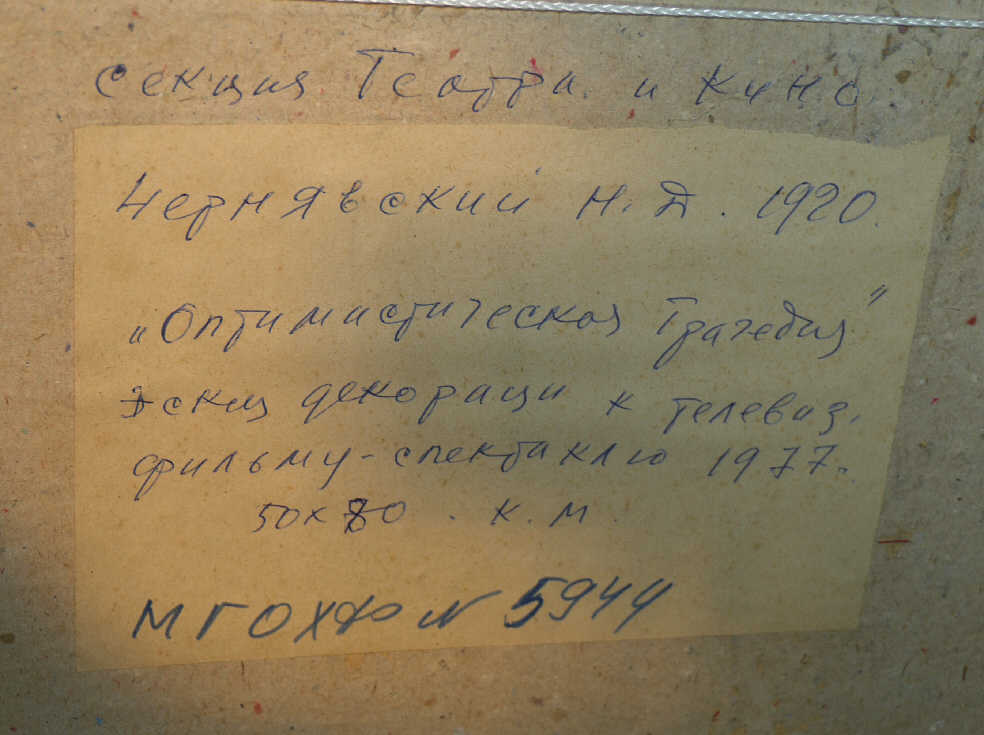 секция Театра и Кино.
Чернявский Н.Д. 1920.
„Оптимистическая Трагедия"
Эскиз декораци к телевиз.
фильму-спектаклю 1977.
50х80. к.м
МГОХФ № 5944